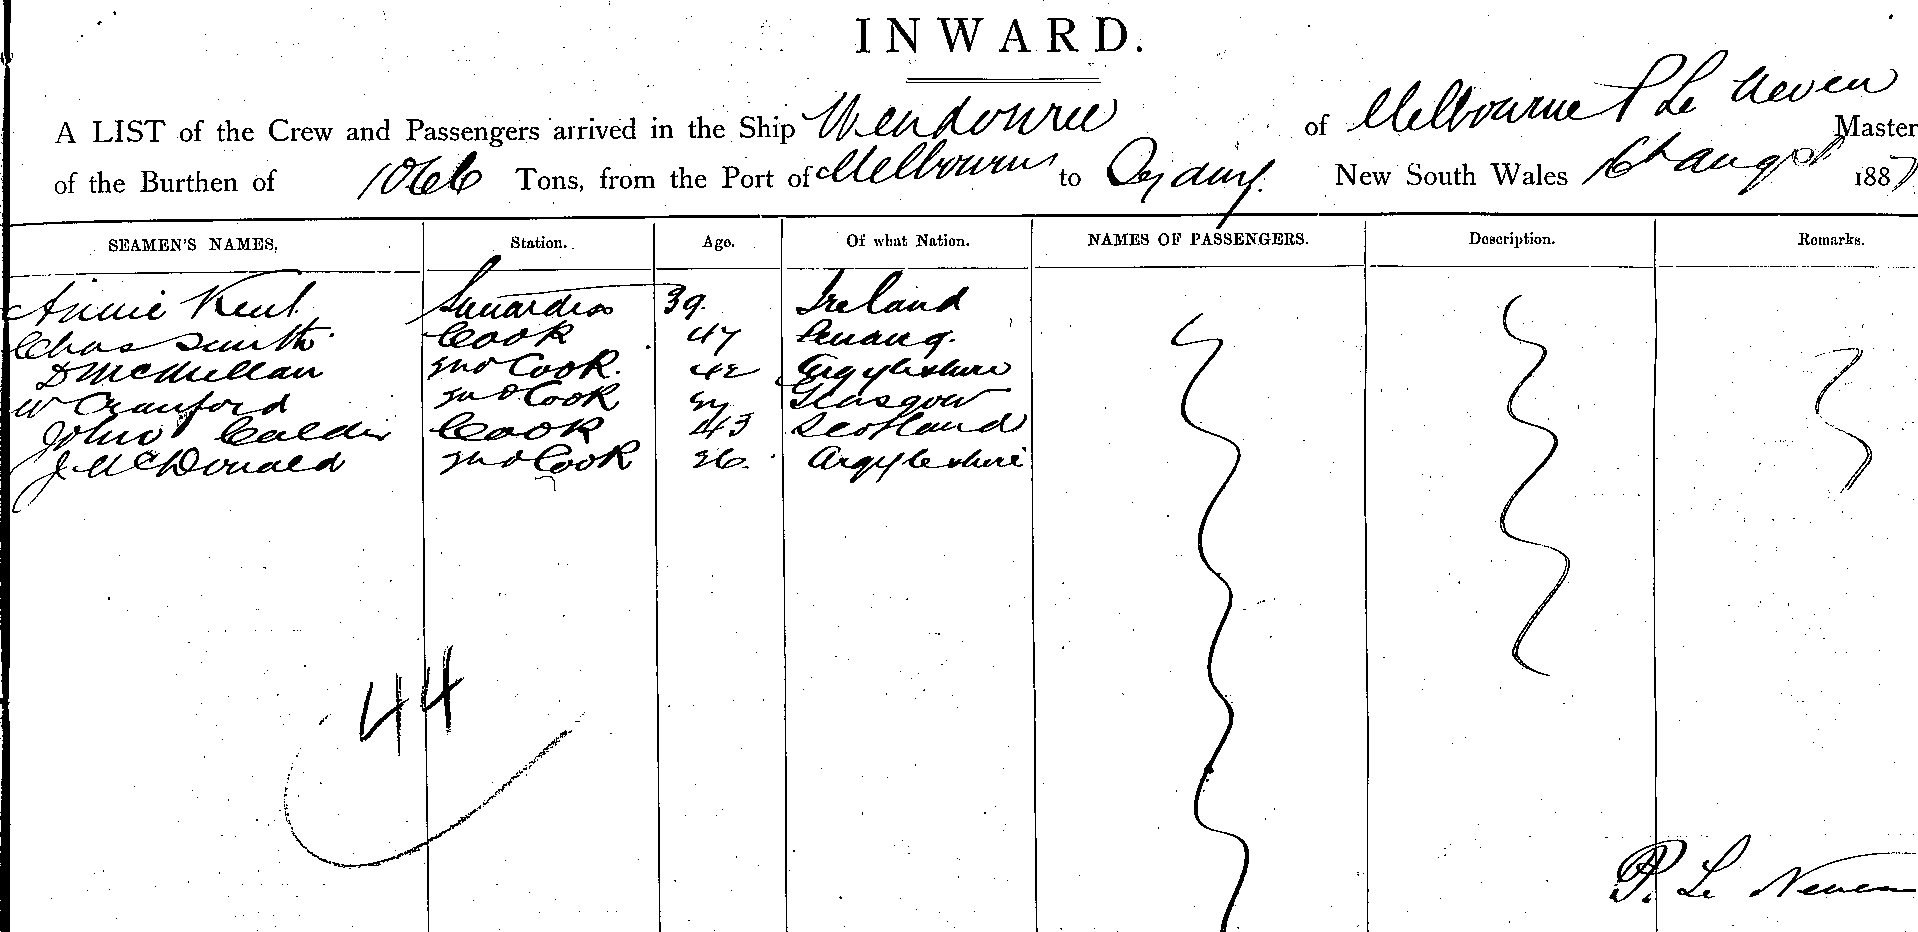 INWARD.
A LIST of the Crew and Passengers arrived in the Ship Wendouree of Melbourne P Le Neven Master
of the Burthen of 1066 Tons, from the Port of Melbourne to Sydney New South Wales 16th Augst 1887
SEAMEN'S NAMES. Station. Age. Of what Nation. NAMES OF PASSENGERS. Description. Remarks.
Annie Kent 39. Ireland
Chas Smith Cook 47 Penang.
D McMillan 2nd Cook. 42 Argyleshire
W Cranford 2nd Cook Glasgow
John Calder Cook 43 Scotland
J. McDonald 2nd Cook 26. Argyleshire
44
P. Le Neven